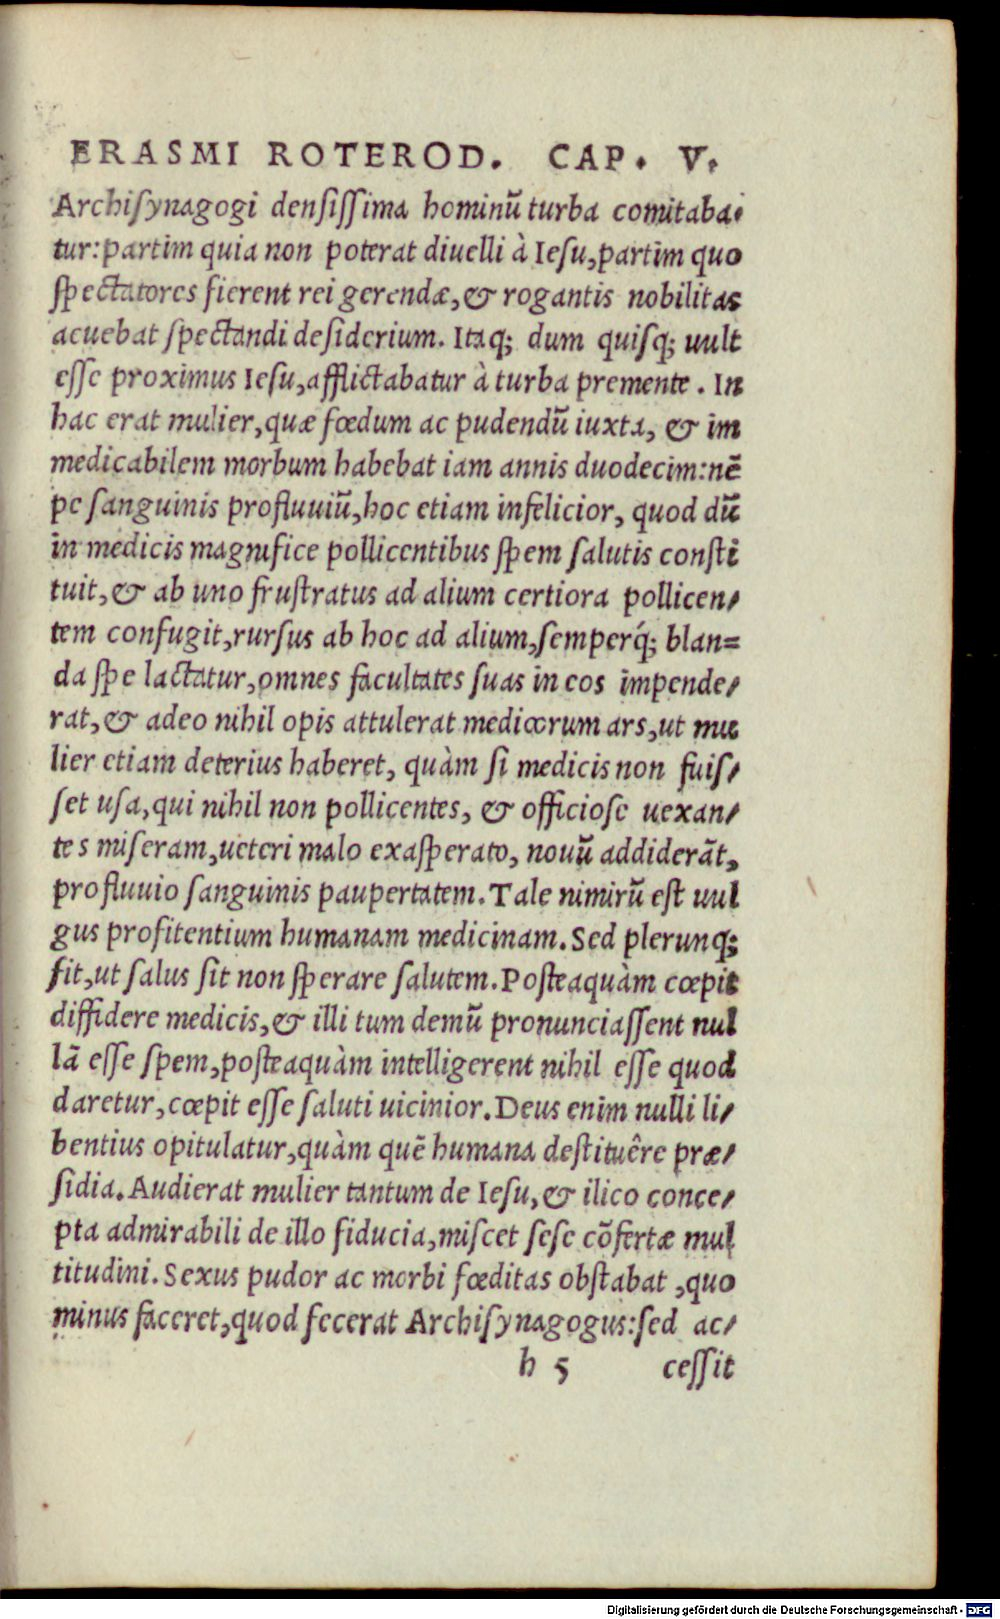 ERASMI ROTEROD. CAP. V.
Archiſynagogi denſiſſima hominũ turba comitaba⸗
tur: partim quia non poterat diuelli à Ieſu, partim quo
ſpectatores fierent rei gerendæ, & rogantis nobilitas
acuebat ſpectandi deſiderium. Itaq; dum quiſq; uult
eſſe proximus Ieſu, afflictabatur à turba premente. In
hac erat mulier, quæ fœdum ac pudendũ iuxta, & im
medicabilem morbum habebat iam annis duodecim: nẽ
pe ſanguinis profluuiũ, hoc etiam infelicior, quod dũ
in medicis magnifice pollicentibus ſpem ſalutis conſti
tuit, & ab uno fruſtratus ad alium certiora pollicen⸗
tem confugit, rurſus ab hoc ad alium, ſemperq́; blan=
da ſpe lactatur, omnes facultates ſuas in eos impende⸗
rat, & adeo nihil opis attulerat medicorum ars, ut mu
lier etiam deterius haberet, quàm ſi medicis non fuiſ⸗
ſet uſa, qui nihil non pollicentes, & officioſe uexan⸗
tes miſeram, ueteri malo exaſperato, nouũ addiderãt,
profluuio ſanguinis paupertatem. Tale nimirũ eſt uul
gus profitentium humanam medicinam. Sed plerunq;
fit, ut ſalus ſit non ſperare ſalutem. Poſteaquàm cœpit
diffidere medicis, & illi tum demũ pronunciaſſent nul
lã eſſe ſpem, poſteaquàm intelligerent nihil eſſe quod
daretur, cœpit eſſe ſaluti uicinior. Deus enim nulli li⸗
bentius opitulatur, quàm quẽ humana deſtituêre præ⸗
ſidia. Audierat mulier tantum de Ieſu, & ilico conce⸗
pta admirabili de illo fiducia, miſcet ſeſe cõfertæ mul
titudini. Sexus pudor ac morbi fœditas obſtabat, quo
minus faceret, quod fecerat Archiſynagogus: ſed ac⸗
h 5 ceſſit
Digitalisierung gefördert durch die Deutsche Forschungsgemeinschaft - DFG